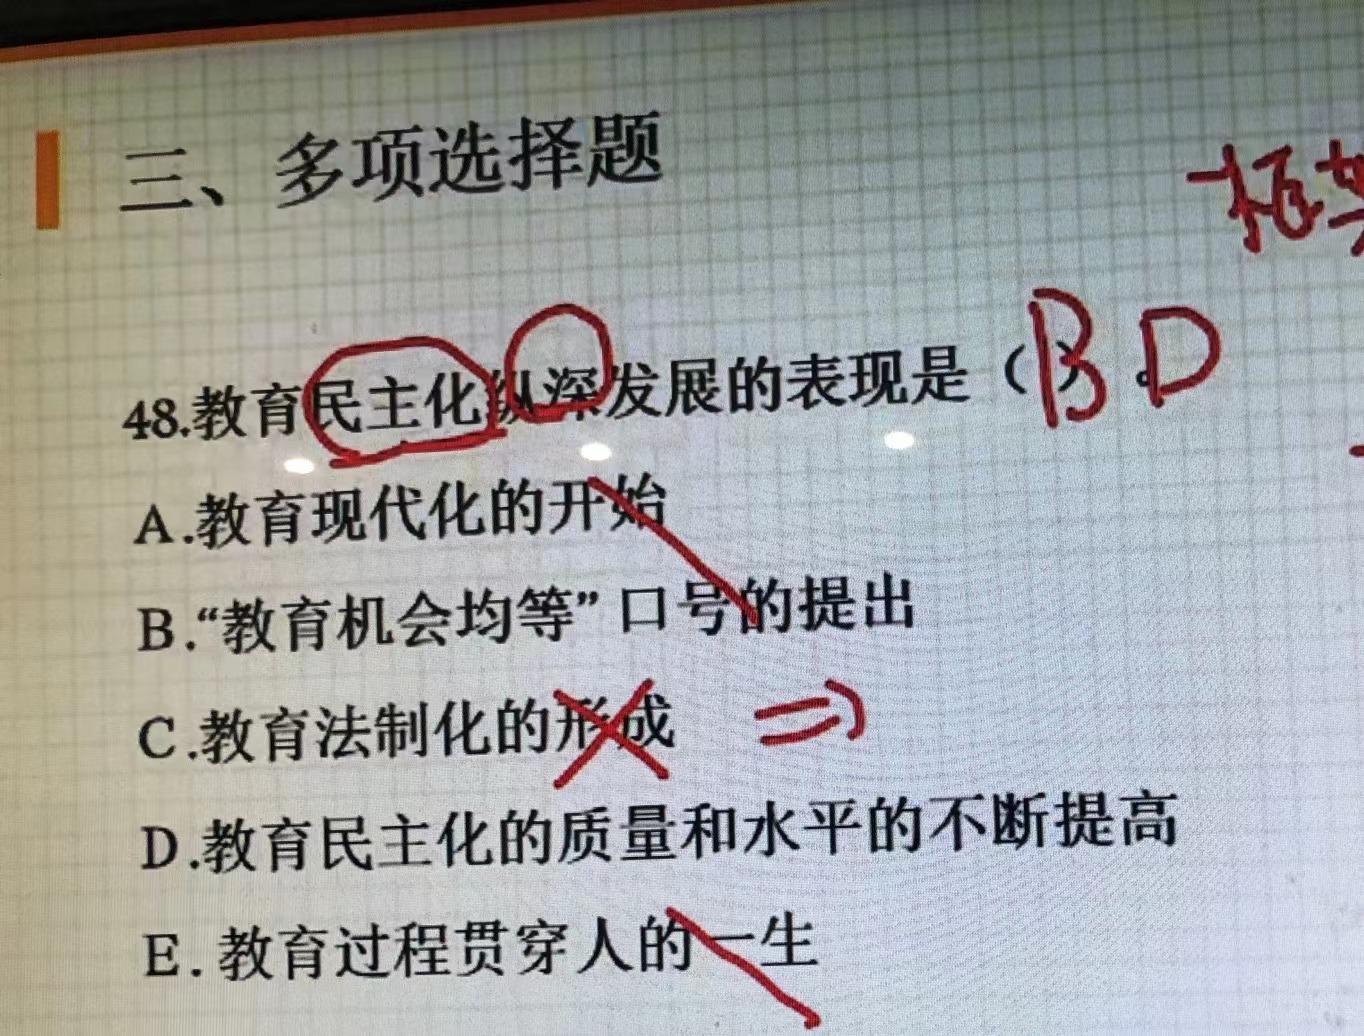 三、多项选择题
框架
48.教育民主化纵深发展的表现是（ ）。BD
A.教育现代化的开始
B.“教育机会均等”口号的提出
C.教育法制化的形成
D.教育民主化的质量和水平的不断提高
E.教育过程贯穿人的一生